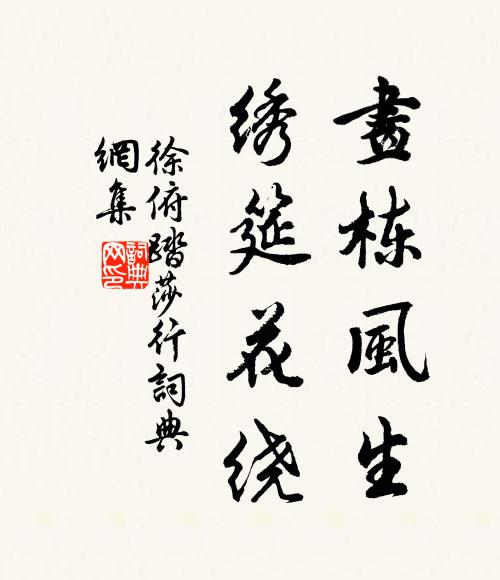 畫栋風生
绣筵花绕
徐俯踏莎行詞典
網集
詞典
网印